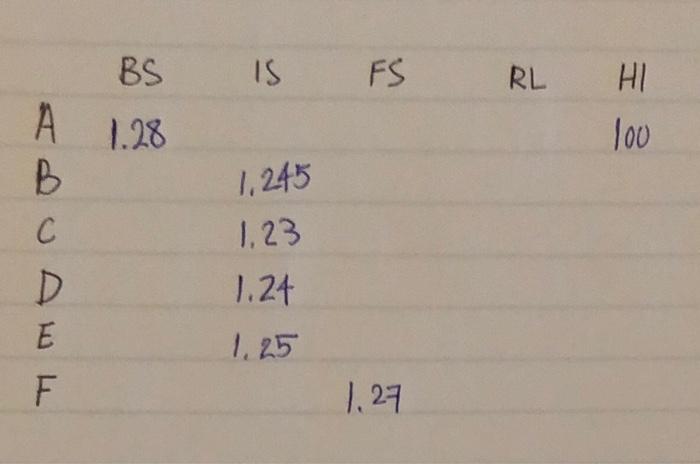 BS IS FS RL HI
A 1.28 100
B 1.245
C 1.23
D 1.24
E 1.25
F 1.27